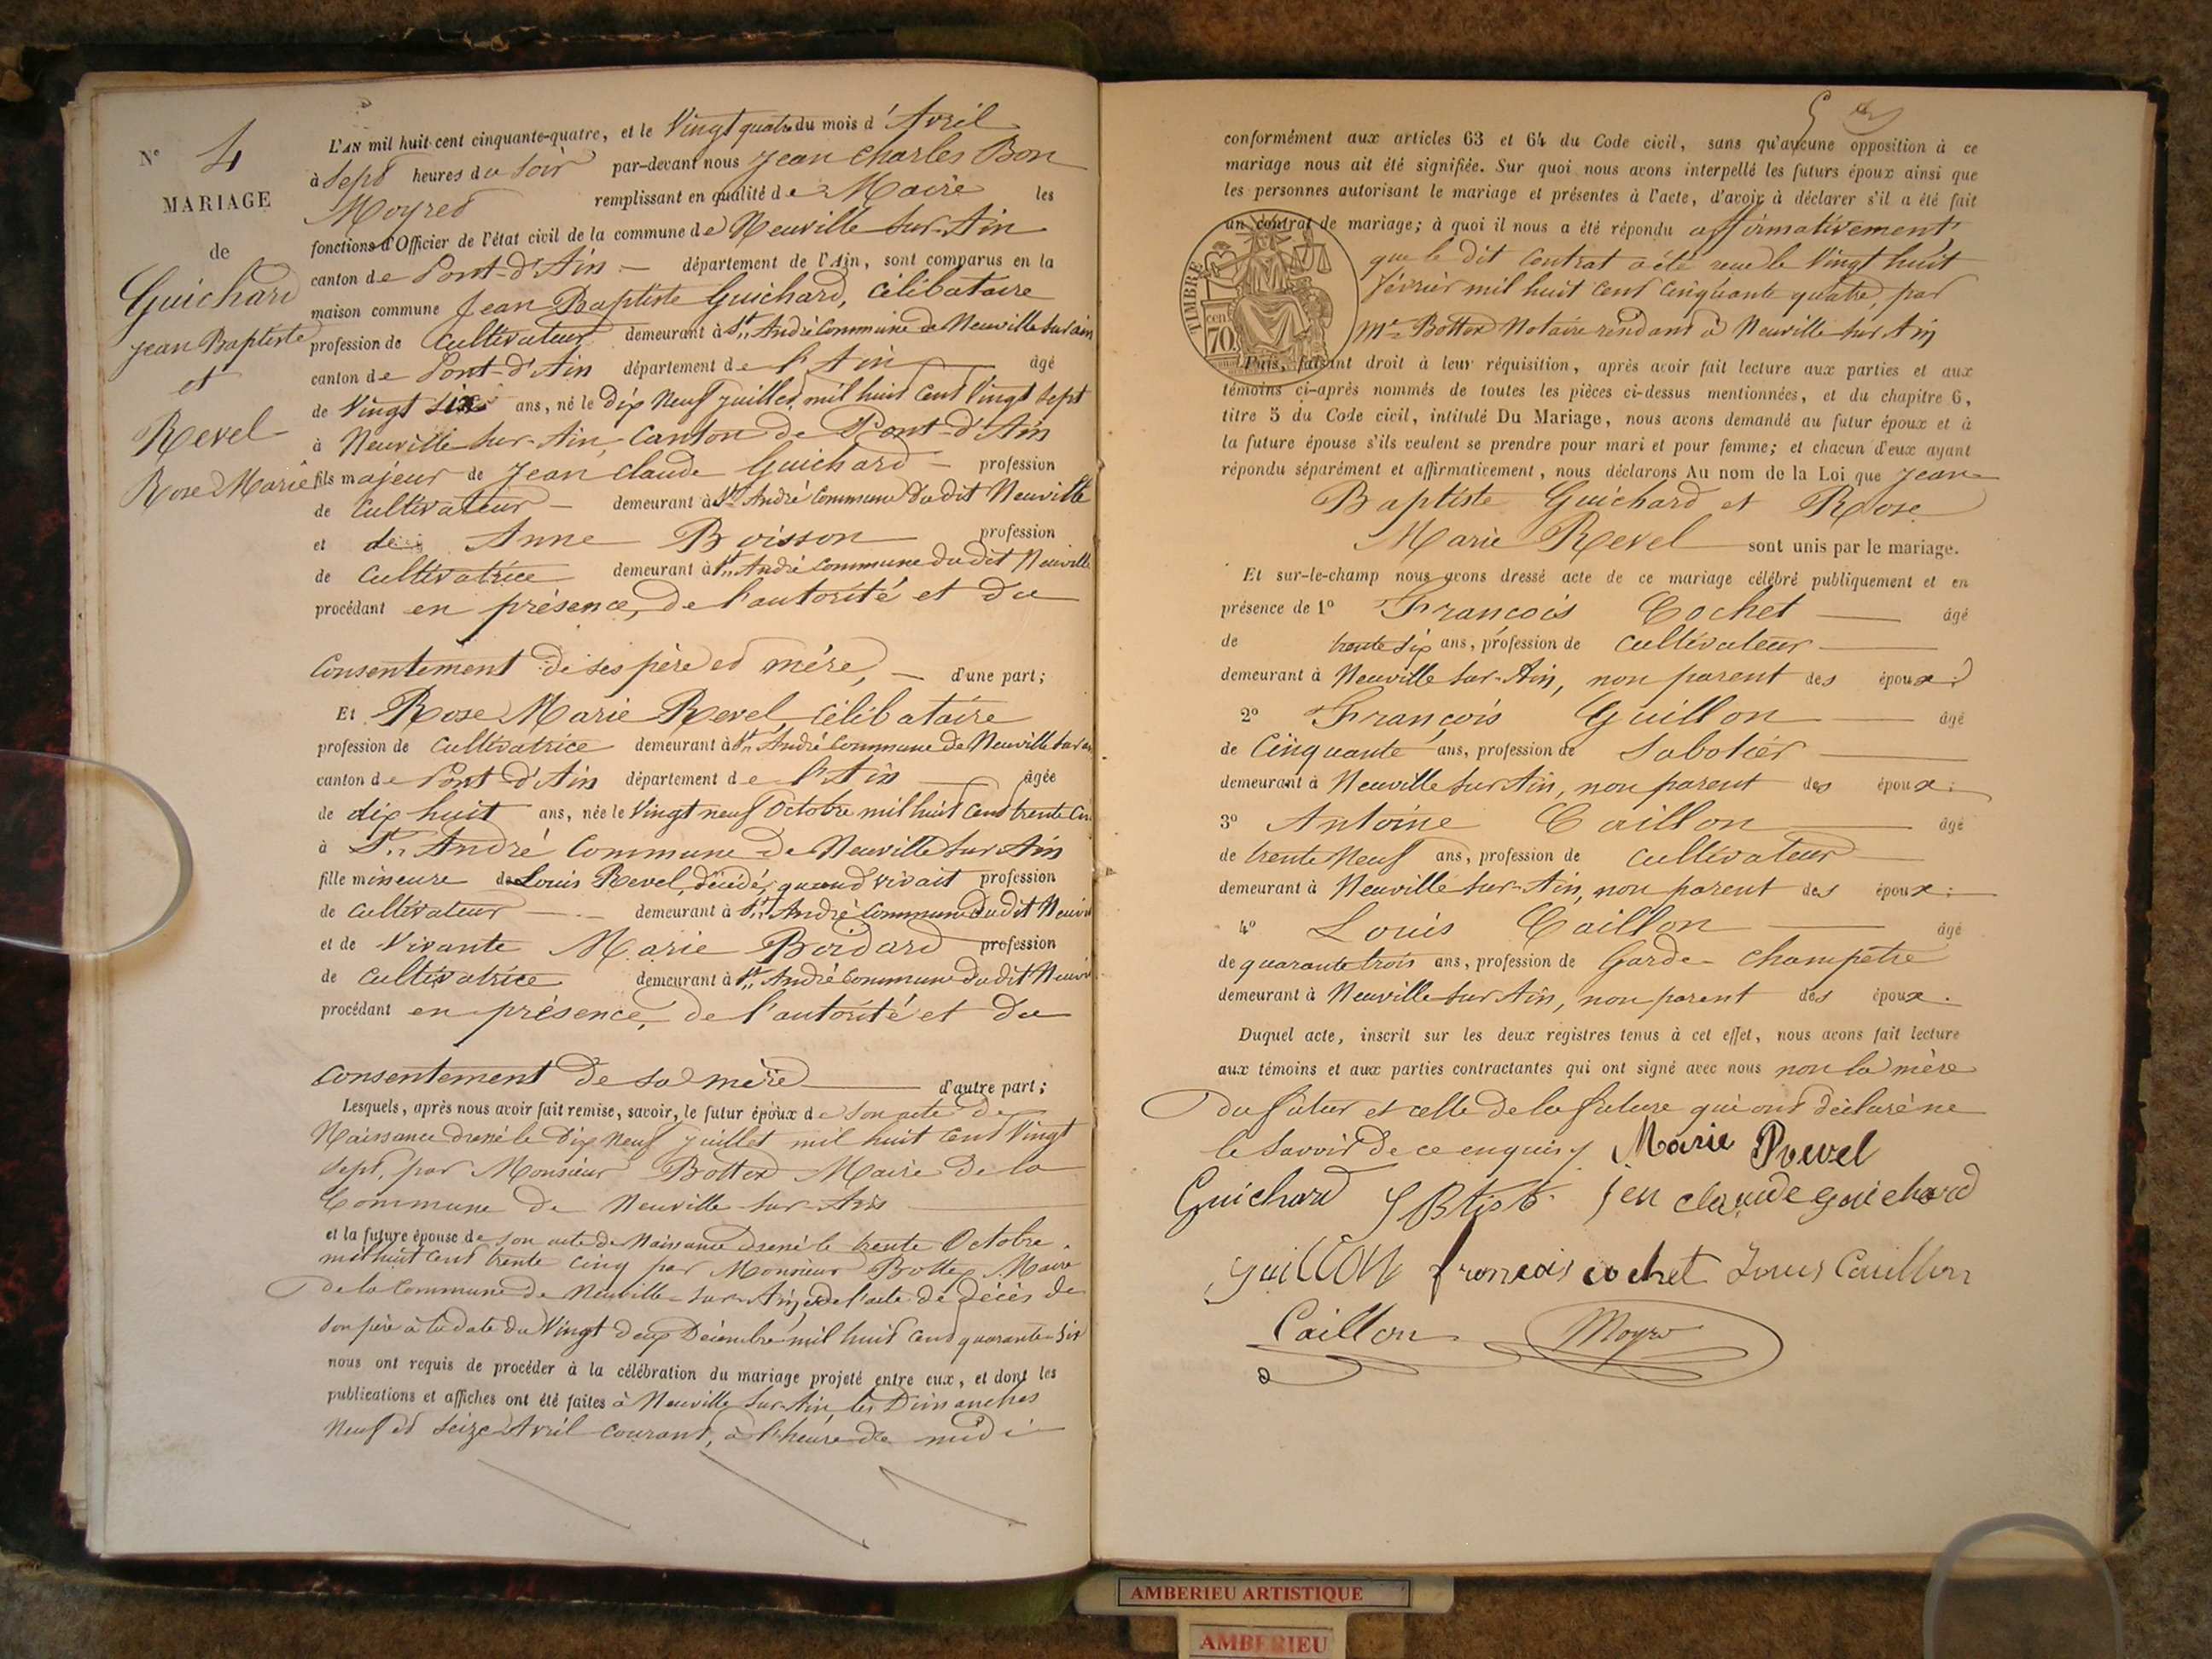 N° 4
MARIAGE
de
Guichard
Jean Baptiste
et
Revel
Rose Marie
L'AN mil huit cent cinquante-quatre, et le Vingt quatre du mois d'Avril
à Sept heures du Soir par-devant nous Jean Charles Bon
Moyret remplissant en qualité de Maire les
fonctions d'Officier de l'état civil de la commune de Neuville Sur-Ain
canton de Pont-d'Ain département de l'Ain, sont comparus en la
maison commune Jean Baptiste Guichard, Célibataire
profession de Cultivateur demeurant à St André Commune de Neuville Sur ain
canton de Pont-d'Ain département de l'Ain âgé
de Vingt Six ans, né le Dix Neuf Juillet mil huit Cent Vingt Sept
à Neuville Sur-Ain, Canton de Pont-d'Ain
fils majeur de Jean Claude Guichard profession
de Cultivateur demeurant à St André Commune du dit Neuville
et de Anne Boisson profession
de Cultivatrice demeurant à St André Commune du dit Neuville
procédant en présence, de l'autorité et du
Consentement de ses père et mère, d'une part;
Et Rose Marie Revel, Célibataire
profession de Cultivatrice demeurant à St André Commune de Neuville Sur
canton de Pont-d'Ain département de l'Ain âgée
de dix huit ans, née le Vingt neuf Octobre mil huit Cent trente
à St André Commune de Neuville Sur Ain
fille mineure de Louis Revel, décédé, quand vivait profession
de Cultivateur demeurant à St André Commune du dit
et de Vivante Marie Boidard profession
de Cultivatrice demeurant à St André Commune du dit
procédant en présence, de l'autorité et du
Consentement de sa mère d'autre part;
Lesquels, après nous avoir fait remise, savoir, le futur époux de Son acte de
Naissance dressé le Dix Neuf Juillet mil huit Cent Vingt
Sept, par Monsieur Bottex Maire de la
Commune de Neuville Sur-Ain
et la future épouse de son acte de Naissance dressé le trente Octobre
mil huit cent trente Cinq par Monsieur Bottex Maire
de la Commune de Neuville-Sur-Ain, et de l'acte de décès de
Son père à la date du Vingt deux Décembre mil huit Cent quarante Six
nous ont requis de procéder à la célébration du mariage projeté entre eux, et dont les
publications et affiches ont été faites à Neuville Sur-Ain, les Dimanches
Neuf et Seize Avril courant, à l'heure de midi
5
conformément aux articles 63 et 64 du Code civil, sans qu'aucune opposition à ce
mariage nous ait été signifiée. Sur quoi nous avons interpellé les futurs époux ainsi que
les personnes autorisant le mariage et présentes à l'acte, d'avoir à déclarer s'il a été fait
un contrat de mariage; à quoi il nous a été répondu affirmativement
que le dit Contrat a été reçu le Vingt huit
février mil huit Cent Cinquante quatre, par
Me Bottex Notaire résidant à Neuville sur Ain
TIMBRE
cent
70
Puis, faisant droit à leur réquisition, après avoir fait lecture aux parties et aux
témoins ci-après nommés de toutes les pièces ci-dessus mentionnées, et du chapitre 6,
titre 5 du Code civil, intitulé Du Mariage, nous avons demandé au futur époux et à
la future épouse s'ils veulent se prendre pour mari et pour femme; et chacun d'eux ayant
répondu séparément et affirmativement, nous déclarons Au nom de la Loi que Jean
Baptiste Guichard et Rose
Marie Revel sont unis par le mariage.
Et sur-le-champ nous avons dressé acte de ce mariage célébré publiquement et en
présence de 1° François Cochet âgé
de trente Six ans, profession de Cultivateur
demeurant à Neuville Sur-Ain, non parent des époux;
2° François Guillon âgé
de Cinquante ans, profession de Sabotier
demeurant à Neuville Sur Ain, non parent des époux;
3° Antoine Caillon âgé
de trente Neuf ans, profession de Cultivateur
demeurant à Neuville Sur-Ain, non parent des époux;
4° Louis Caillon âgé
de quarante trois ans, profession de Garde-Champetre
demeurant à Neuville Sur Ain, non parent des époux.
Duquel acte, inscrit sur les deux registres tenus à cet effet, nous avons fait lecture
aux témoins et aux parties contractantes qui ont signé avec nous non la mère
du futur et celle de la future qui ont déclaré ne
le savoir de ce enquis
Marie Revel
Guichard J Btist jen claude guichard
guillon francois cochet Louis Caillon
Caillon Moyret
AMBERIEU ARTISTIQUE
AMBERIEU